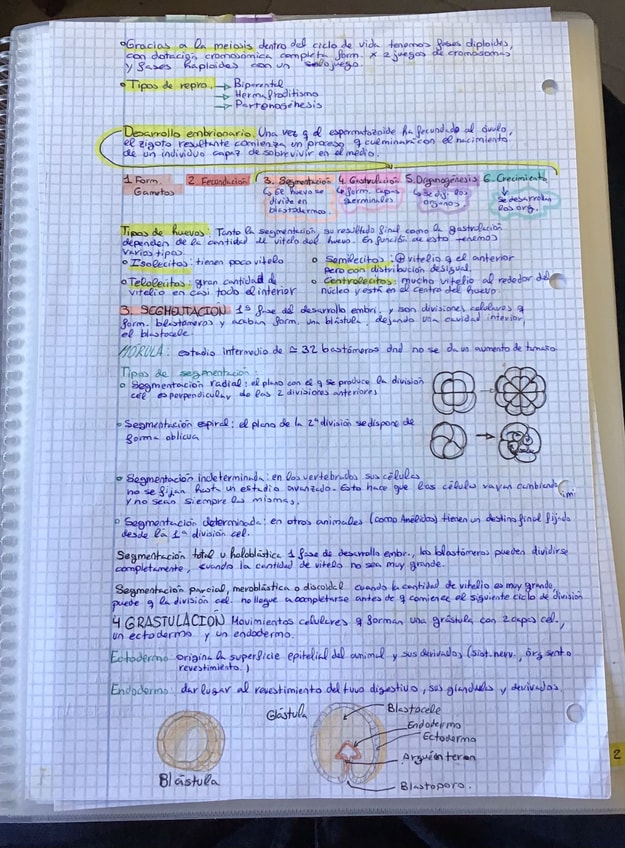 Gracias a la meiosis dentro del ciclo de vida tenemos fases diploides,
con dotación cromosómica completa form. x 2 juegos de cromosomas
y fases haploides con un solo juego.
Tipos de repro. → Biparental
→ Hermafroditismo
→ Partenogénesis
Desarrollo embrionario. Una vez q el espermatozoide ha fecundado al óvulo,
el zigoto resultante comienza un proceso q culminará con el nacimiento
de un individuo capaz de sobrevivir en el medio.
1. Form. Gametos
2. Fecundación
3. Segmentación
↳ El huevo se divide en blastodermo.
4. Gastrulación
↳ form. capas germinales
5. Organogénesis
los órganos
6. Crecimiento
↓
se desarrollan los org.
Tipos de huevos: Tanto la segmentación, su resultado final como la gastrulación
dependen de la cantidad de vitelo del huevo. En función de esto tenemos
varios tipos
Isolecitos: tienen poco vitelo
Telolecitos: gran cantidad de
vitelio en casi todo el interior
Semilecitos: ⊕ vitelio q el anterior
pero con distribución desigual.
Centrolecitos: mucho vitelio al rededor del
núcleo y está en el centro del huevo
3. SEGMENTACION 1ª fase del desarrollo embri. y son divisiones celulares q
form. blastómeros y acaban form. una blástula, dejando una cavidad interior,
el blastocele.
MÓRULA: estadio intermedio de ≃ 32 bastómeros dnd no se da us aumento de tamaño
Tipos de segmentación:
Segmentación radial: el plano con el q se produce la división
cel es perpendicular de las 2 divisiones anteriores
Segmentación espiral: el plano de la 2ª división se dispone de
forma oblicua
Segmentación indeterminada: en los vertebrados sus células
no se fijan hasta un estadio avanzado. Esto hace que las célula vayan cambiando
y no sean siempre las mismas.
Segmentación determinada: en otros animales (como Anélidos) tienen un destino final fijado
desde la 1ª división cel.
Segmentación total u holoblástica 1 fase de desarrollo embr., los blastómeros pueden dividirse
completamente, cuando la cantidad de vitelo no sea muy grande.
Segmentación parcial, meroblástica o discoidal cuando la cantidad de vitelio es muy grande,
puede q la división cel. no llegue a completarse antes de q comience el siguiente ciclo de división
4 GRASTULACION Movimientos celulares q forman una grástula con 2 capas cel.,
un ectodermo y un endodermo.
Ectodermo origina la superficie epitelial del animal y sus derivados (sist. nerv., órg snto
revestimiento.)
Endodermo: dar lugar al revestimiento del tuvo digestivo, sus glándulas y derivados.
Blástula
Glástula
Blastocele
Endodermo
Ectodermo
Arquénteron
Blastoporo.
2